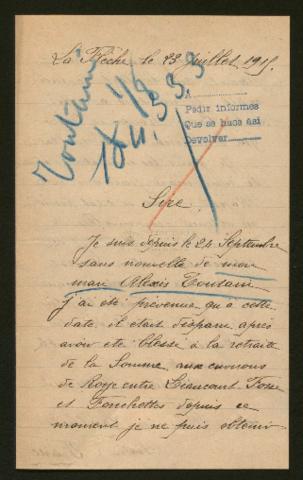 La Flèche le 23 juillet 1915.
Toutain
1/8
18 u. 333
A
Pedir informes
Que se hace asi
Devolver
Sire,
Je suis depuis le 24 Septembre
sans nouvelle de mon
mari Alexis Toutain
j'ai été prévenue qu'a cette
date il était disparu après
avoir été blessé à la retraite
de la Somme aux environs
de Roye entre Liancourt Fosse
et Fonchettes depuis ce
moment je ne puis obtenir